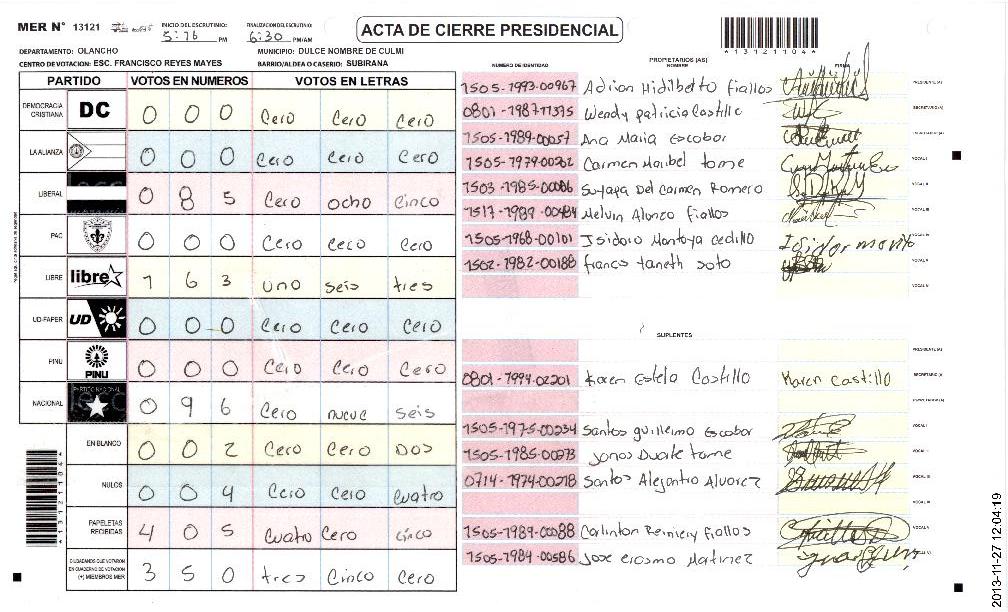 MER N° 13121
INICIO DEL ESCRUTINIO: 5:16 PM
FINALIZACION DEL ESCRUTINIO: 6:30 PM/AM
ACTA DE CIERRE PRESIDENCIAL
*13121104*
DEPARTAMENTO: OLANCHO
MUNICIPIO: DULCE NOMBRE DE CULMI
CENTRO DE VOTACION: ESC. FRANCISCO REYES MAYES
BARRIO/ALDEA O CASERIO: SUBIRANA
PARTIDO VOTOS EN NUMEROS VOTOS EN LETRAS
DEMOCRACIA CRISTIANA DC 0 0 0 Cero Cero Cero
LA ALIANZA 0 0 0 Cero Cero Cero
LIBERAL 0 8 5 Cero ocho Cinco
PAC 0 0 0 Cero Cero Cero
LIBRE libre 1 6 3 uno seis tres
UD-FAPER UD 0 0 0 Cero Cero Cero
PINU PINU 0 0 0 Cero Cero Cero
NACIONAL PARTIDO NACIONAL 0 9 6 Cero nueve seis
EN BLANCO 0 0 2 Cero Cero Dos
NULOS 0 0 4 Cero Cero Cuatro
PAPELETAS RECIBIDAS 4 0 5 Cuatro Cero cinco
CIUDADANOS QUE VOTARON EN CUADERNO DE VOTACION (+) MIEMBROS MER 3 5 0 tres Cinco Cero
PROPIETARIOS (AS)
NUMERO DE IDENTIDAD NOMBRE FIRMA
1505-1993-00967 Adrian Hidilberto Fiallos PRESIDENTE (A)
0801-1987-11395 Wendy patricia Castillo SECRETARIO (A)
1505-1989-00057 Ana Maria Escobar
1505-1979-00262 Carmen Maribel tome VOCAL I
1503-1985-00086 Suyapa Del Carmen Romero VOCAL II
1517-1989-00484 Melvin Alonzo fiallos VOCAL III
1505-1968-00101 Isidoro Montoya Cedillo
1502-1982-00188 franco Yaneth Soto VOCAL V
SUPLENTES
PRESIDENTE (A)
0801-1994-02201 Karen Estela Castillo Karen Castillo SECRETARIO (A)
1505-1975-00234 Santos guillermo Escobar VOCAL I
1505-1985-00273 Jonas Duarte tome VOCAL II
0714-1974-00218 Santos Alejandro Alvarez VOCAL III
1505-1989-00088 Carlinton Reniery Fiallos VOCAL V
1505-1984-00586 Jose erasmo Martinez
2013-11-27 12:04:19